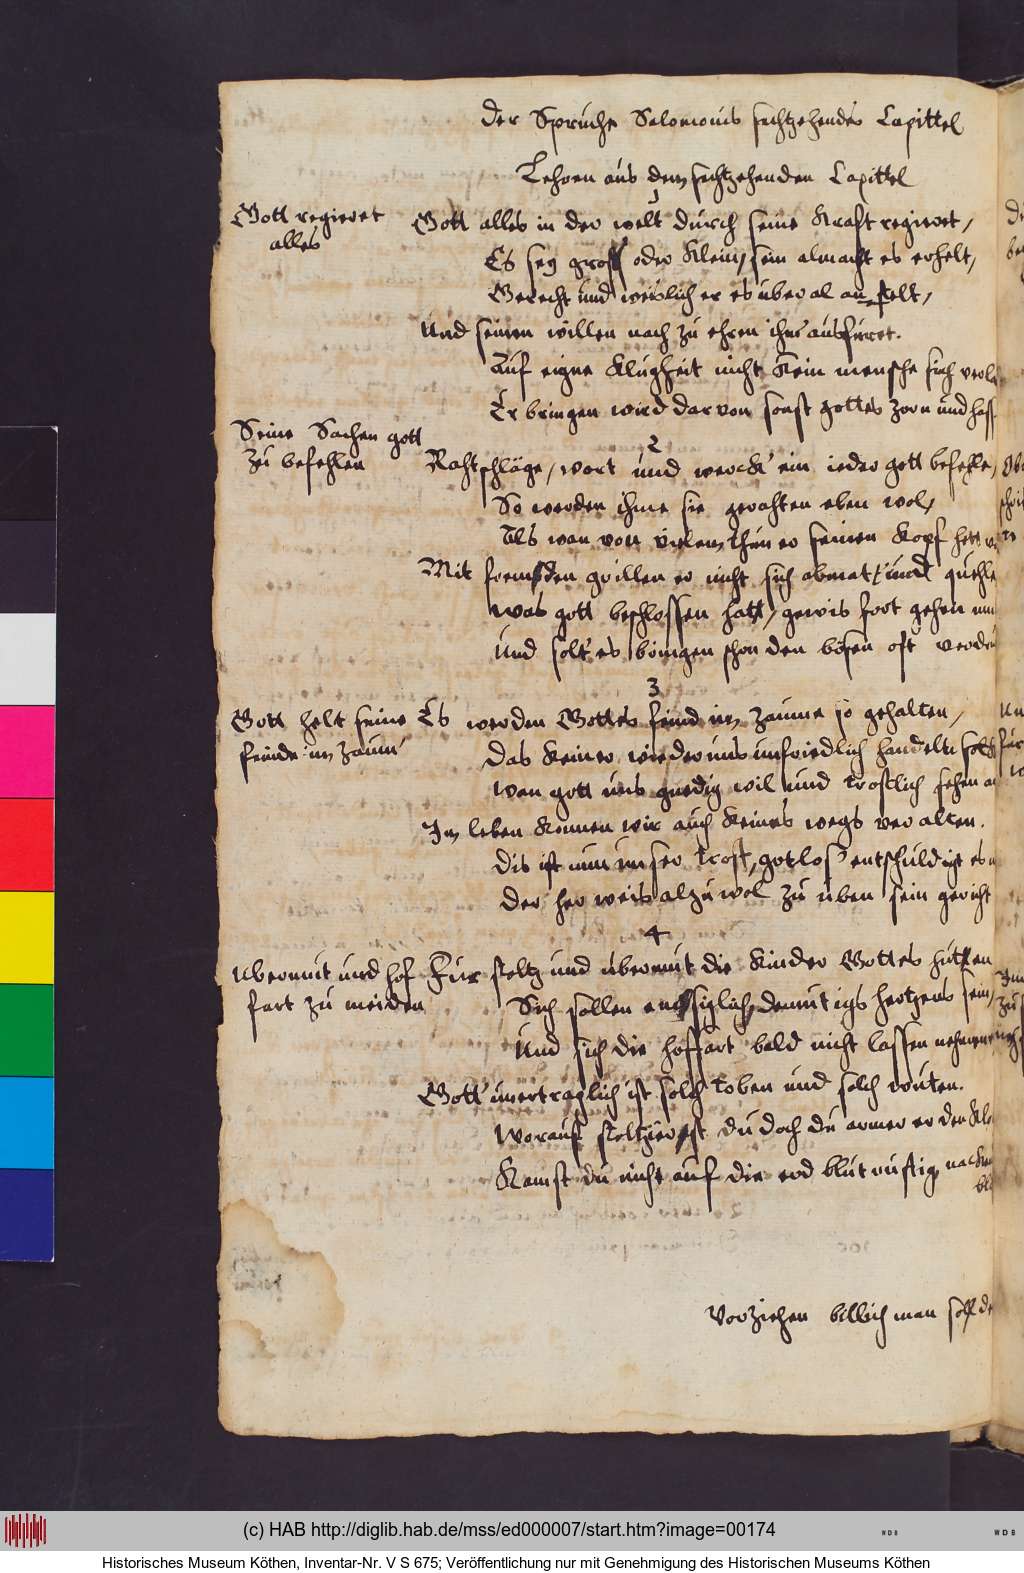 Der Spruche Salomonis sechtzehendes Capittel
Lehren aus dem sechtzehenden Capittel
1
Gott regieret
alles
Gott alles in der welt durch seine Kraft regieret,
Es sey gross oder Klein, sein almacht es erhelt,
Gerecht und weislich er es uberal anstelt,
Und seinen willen nach zu ehren ihm ausfüret.
Auf eigne Klugheit nicht Kein mensche sich
Er bringen wird darvon sonst gottes zorn und hass
Seine Sachen gott
zu befehlen
2
Rahtschläge, wort und werck ein ieder gott befehle,
So werden ihme sie gerahten eben wol,
Als wan von vielem thun er seinen Kopf hett
Mit frembden grillen er nicht sich abmat und quehle
was gott beschlossen hatt, gewis fort gehen
Und solt es bringen schon den bösen oft
3
Gott helt seine
feinde im zaum
Es werden Gottes feind im zaume so gehalten,
Das Keiner wieder uns unfriedlich handeln
wan gott uns gnedig wil und trostlich sehen
Im leben Konnen wir auch Keines wegs veralten.
Dis ist nun unser trost, gotlos entschuldigt es
der her weis alzu wol zu üben sein gericht
4
Ubermut und hof
fart zu meiden
Für stoltz und ubermut die Kinder Gottes hütten
Sich sollen embsiglich, demutigs hertzens sein,
Und sich die hoffart bald nicht lassen nehmen
Gott unertraglich ist solch toben und solch wüten.
Worauf stoltzierest du doch du armer erden
Kamst du nicht auf die erd blutrustig
Vorziehen billich man soll
(c) HAB http://diglib.hab.de/mss/ed000007/start.htm?image=00174
WDB
WDB
Historisches Museum Köthen, Inventar-Nr. V S 675; Veröffentlichung nur mit Genehmigung des Historischen Museums Köthen